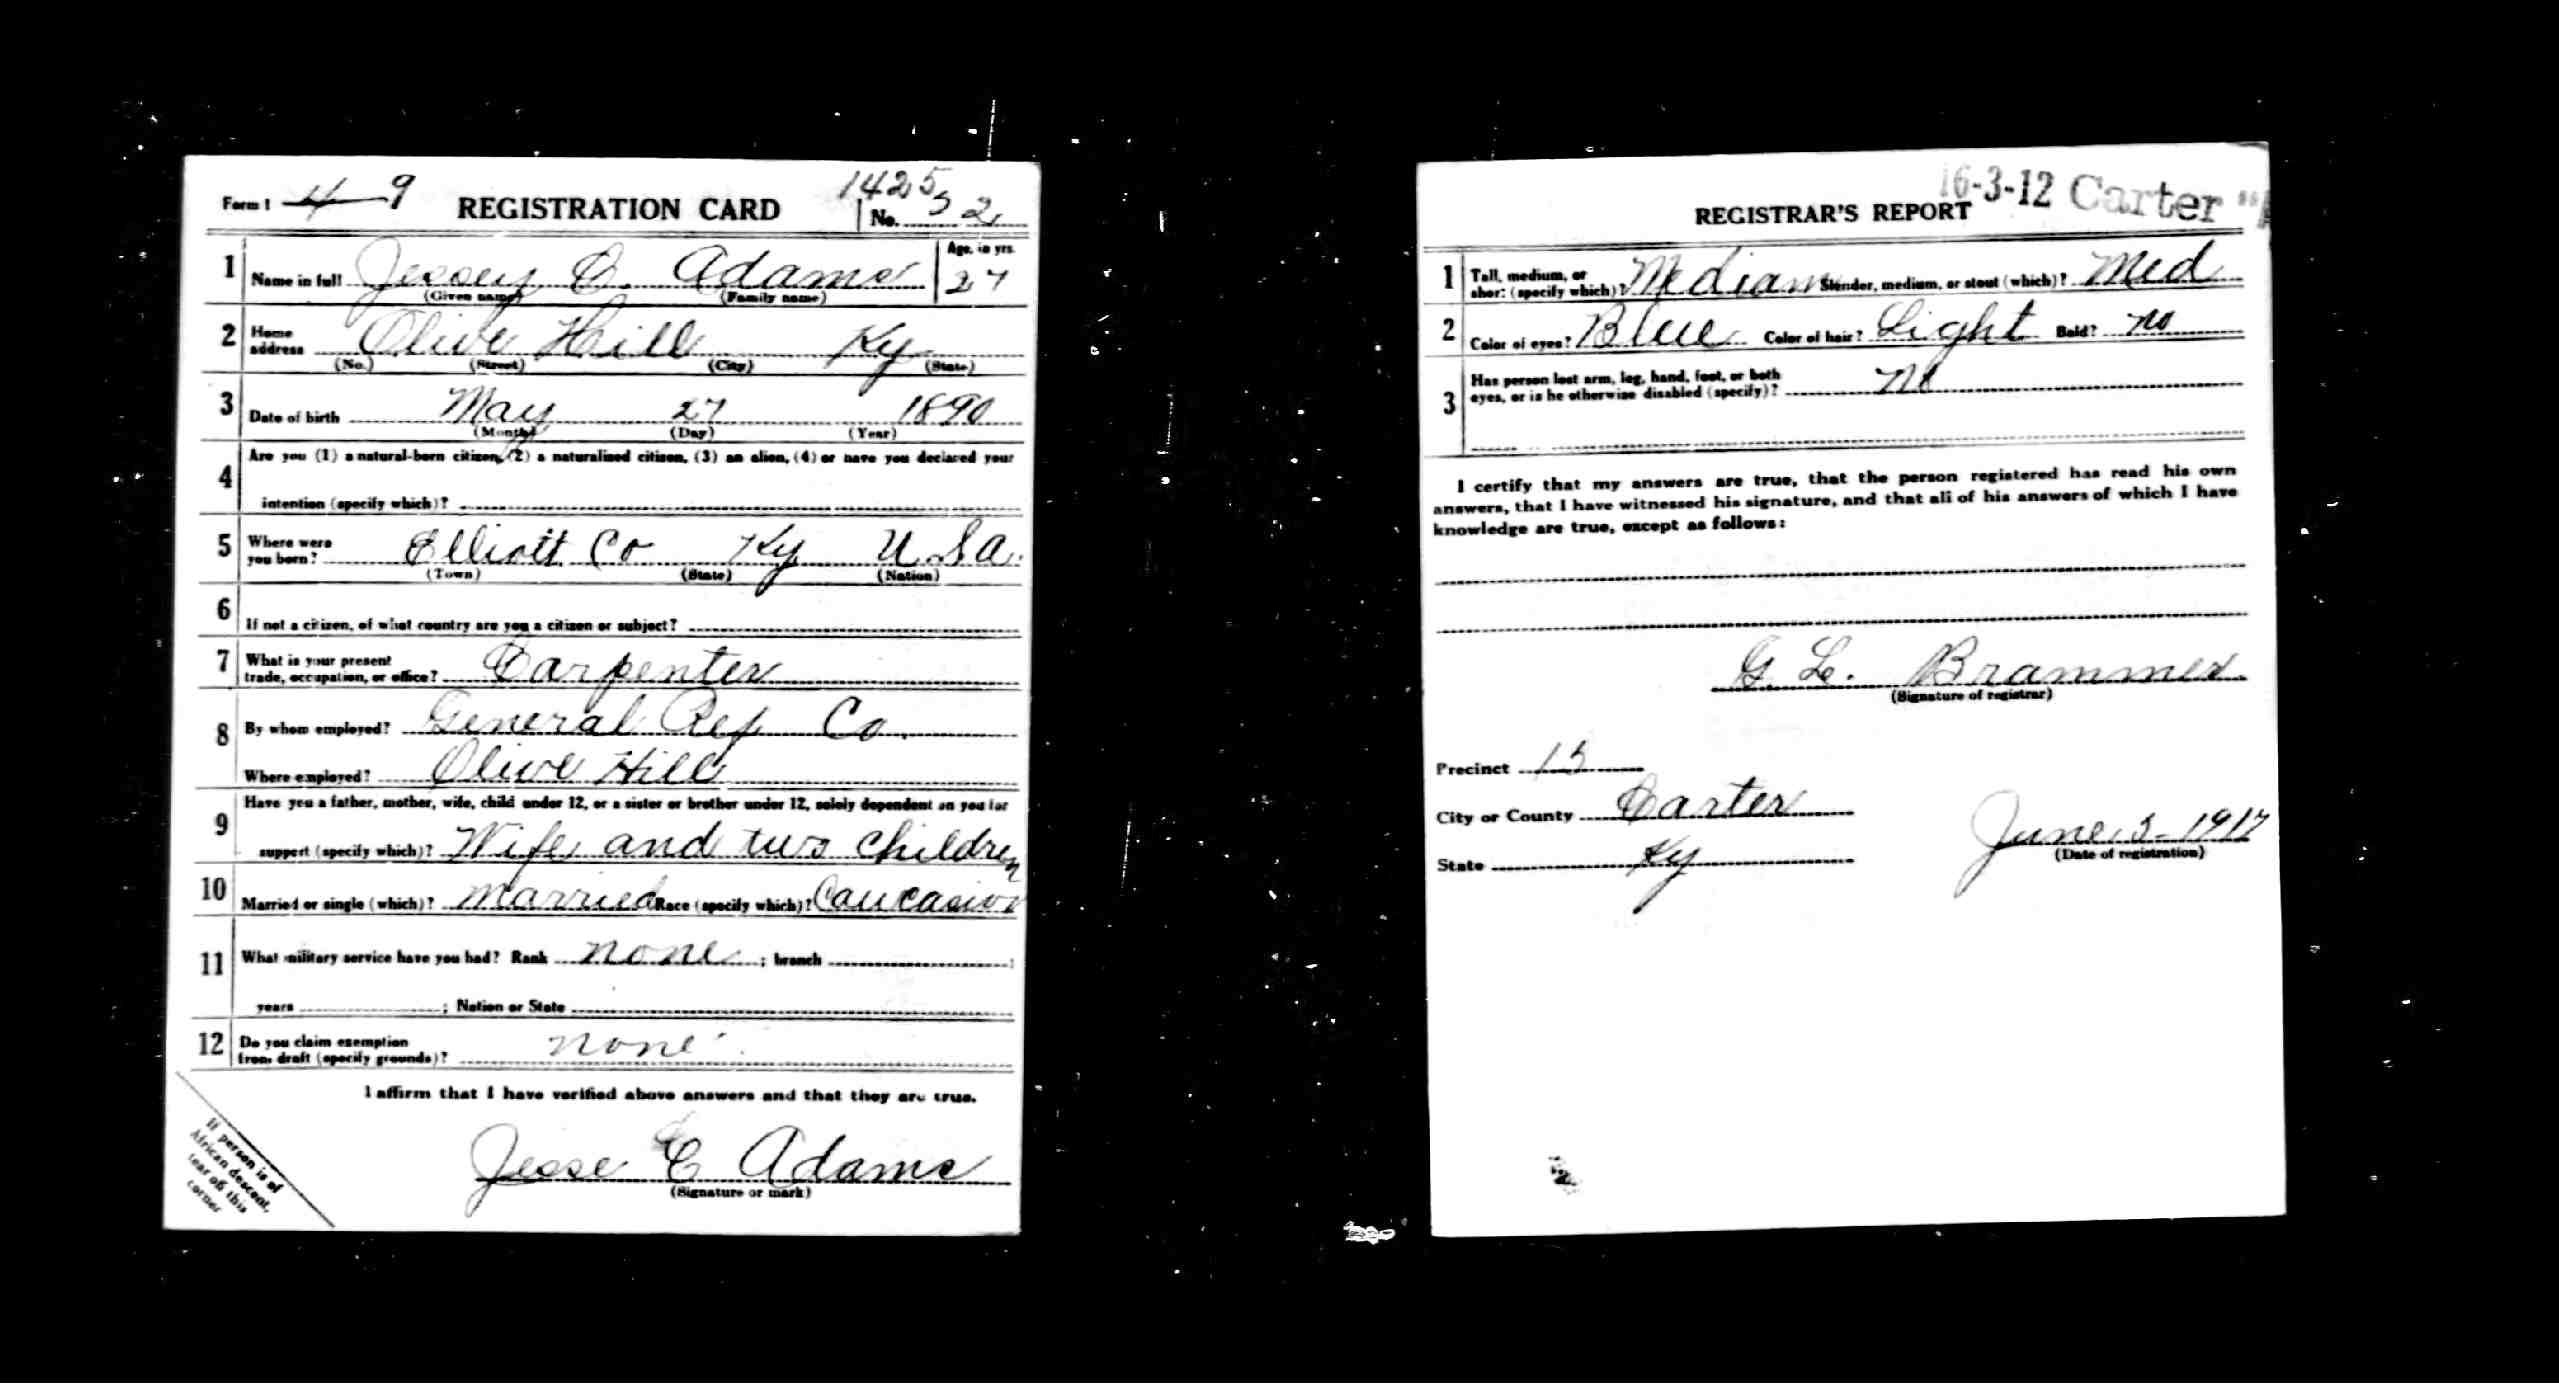 Form 1 4 9 REGISTRATION CARD 1425
No. 52
1 Name in full Jessey C. Adams Age, in yrs. 27
(Given name) (Family name)
2 Home address Olive Hill Ky
(No.) (Street) (City) (State)
3 Date of birth May 27 1890
(Month) (Day) (Year)
4 Are you (1) a natural-born citizen, (2) a naturalized citizen, (3) an alien, (4) or have you declared your
intention (specify which)?
5 Where were you born? Elliott Co Ky U.S.a.
(Town) (State) (Nation)
6 If not a citizen, of what country are you a citizen or subject?
7 What is your present trade, occupation, or office? Carpenter
8 By whom employed? General Ref Co.
Where employed? Olive Hill
9 Have you a father, mother, wife, child under 12, or a sister or brother under 12, solely dependent on you for
support (specify which)? Wife and two children
10 Married or single (which)? Married Race (specify which)? Caucasion
11 What military service have you had? Rank none ; branch ;
years ; Nation or State
12 Do you claim exemption from draft (specify grounds)? none
I affirm that I have verified above answers and that they are true.
Jesse C Adams
(Signature or mark)
If person is of
African descent,
tear off this
corner
16-3-12 Carter
REGISTRAR'S REPORT
1 Tall, medium, or short (specify which)? Mediam Slender, medium, or stout (which)? Med
2 Color of eyes? Blue Color of hair? Light Bald? No
3 Has person lost arm, leg, hand, foot, or both
eyes, or is he otherwise disabled (specify)? No
I certify that my answers are true, that the person registered has read his own
answers, that I have witnessed his signature, and that all of his answers of which I have
knowledge are true, except as follows:
G. L. Brammer
(Signature of registrar)
Precinct 15
City or County Carter
State Ky
June 5-1917
(Date of registration)